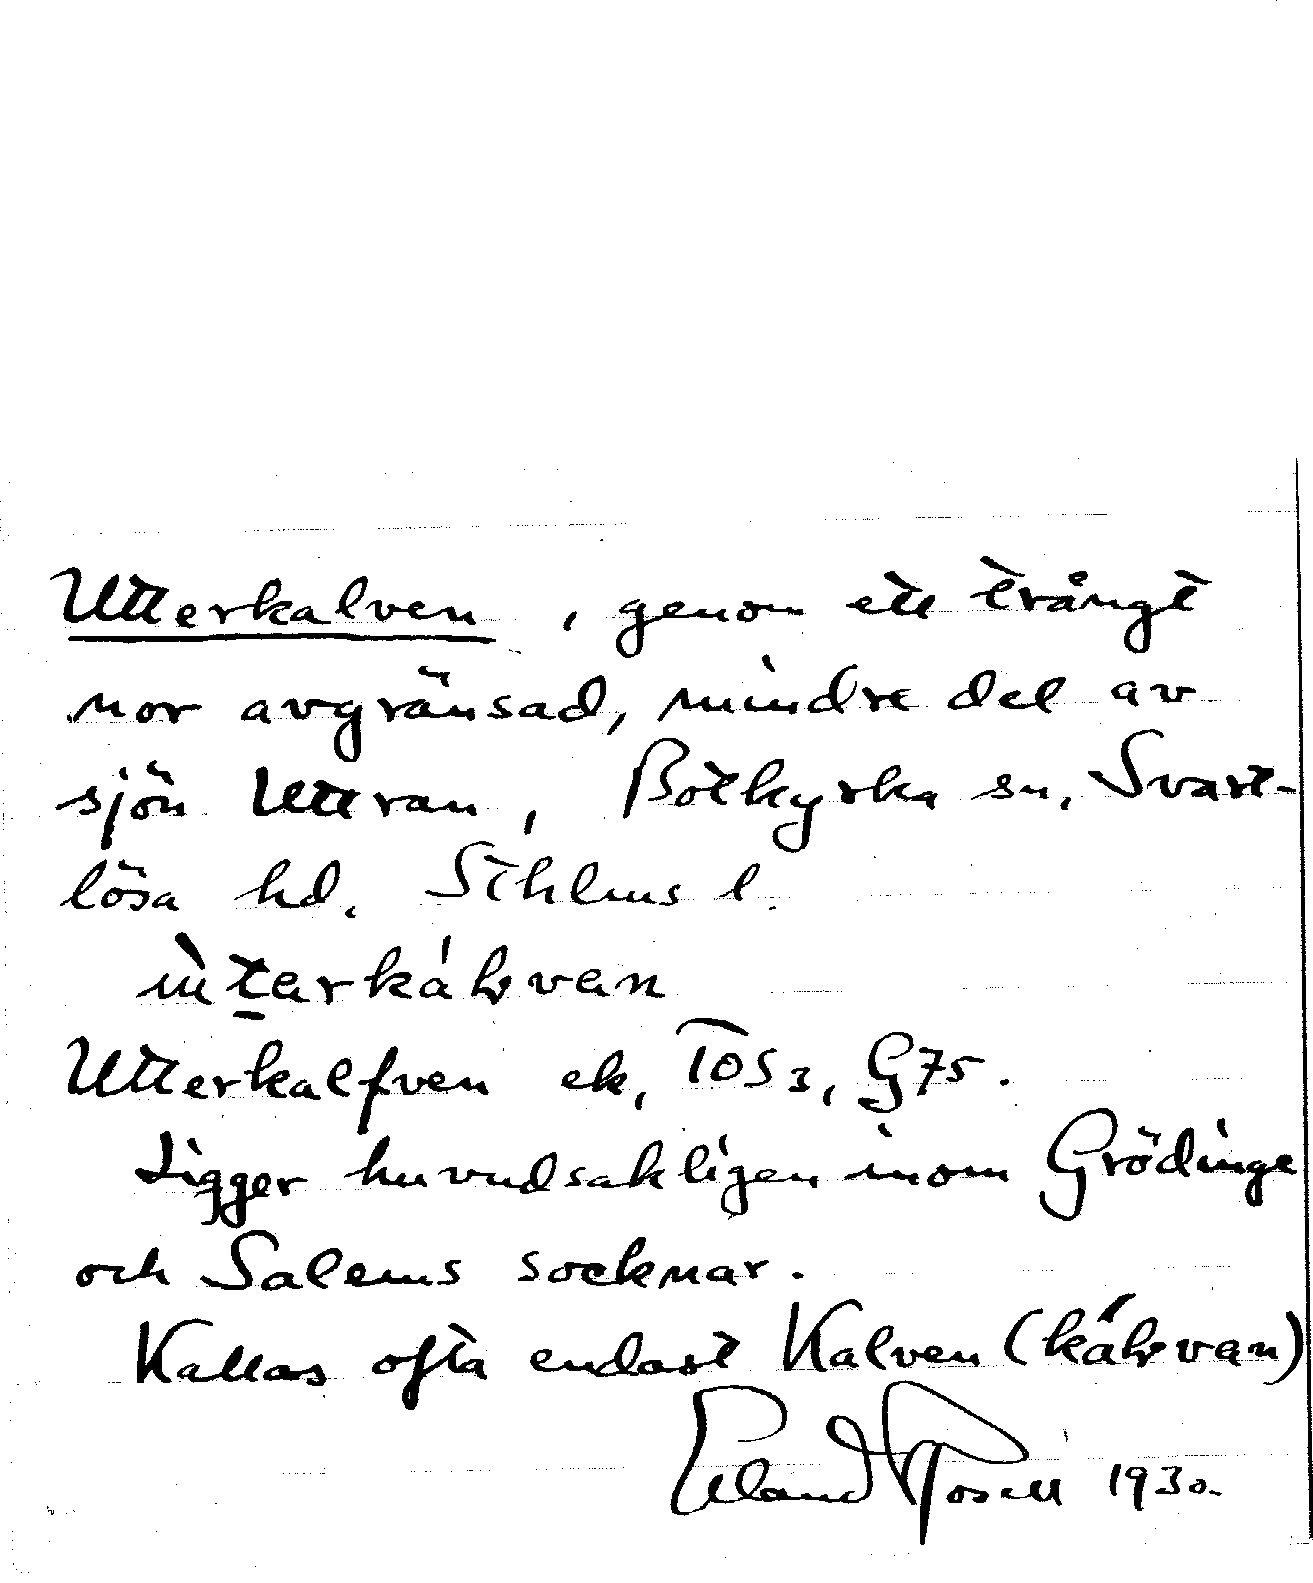 Utterkalven, genom ett trångt
nor avgränsad, mindre del av
sjön Uttran, Botkyrka sn, Svart-
lösa hd. Sthlms l.
Utterkalfven ek, TOS 3, G75.
Ligger huvudsakligen inom Grödinge
och Salems socknar.
Kallas ofta endast Kalven
Erland Rosell 1930.